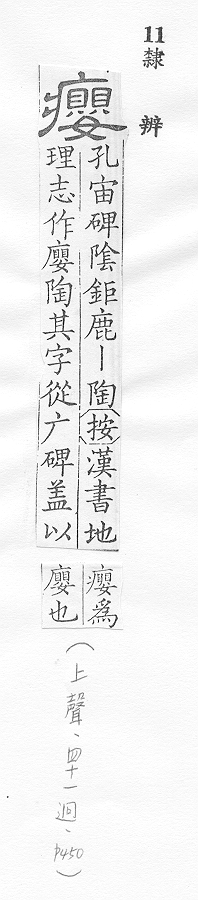 11
隸辨
癭
孔宙碑陰鉅鹿丨陶按漢書地
理志作廮陶其字從广碑盖以
癭爲
廮也
（上聲、四十一迥、p450）